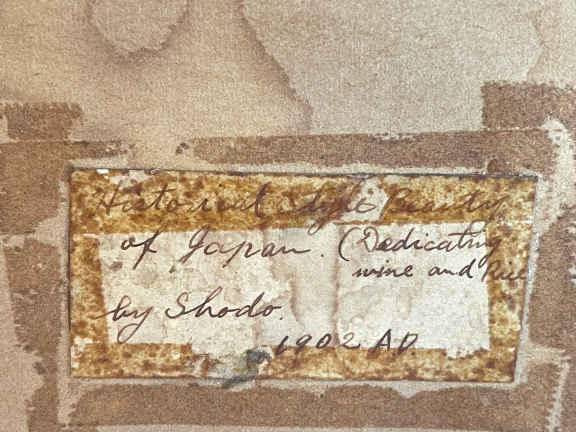 Historical style Beauty
of Japan. (Dedicating
wine and Rice
by Shodo.
1902 AD.